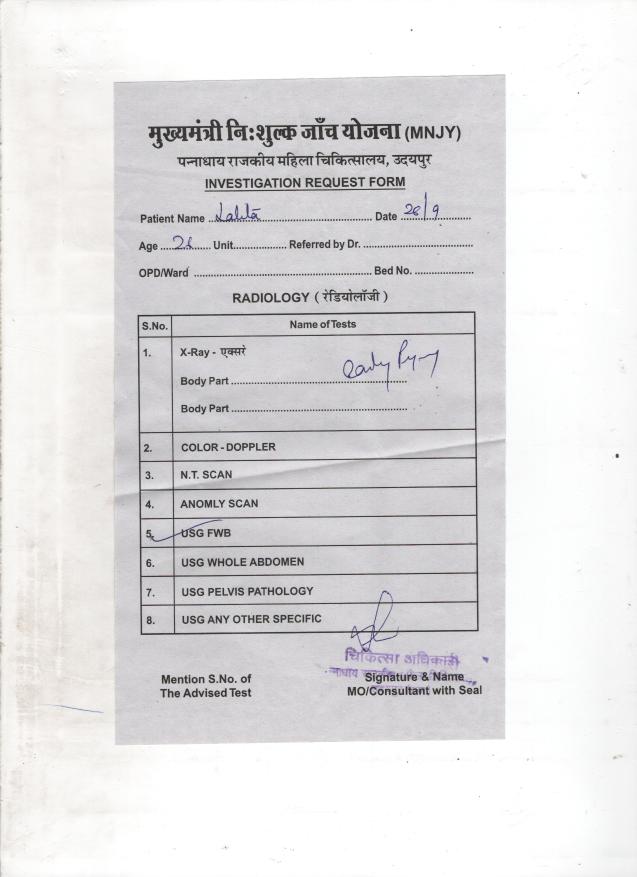 मुख्यमंत्री निःशुल्क जाँच योजना (MNJY)
पन्नाधाय राजकीय महिला चिकित्सालय, उदयपुर
INVESTIGATION REQUEST FORM
Patient Name Lalita Date 26/9
Age 26 Unit Referred by Dr.
OPD/Ward Bed No.
RADIOLOGY ( रेडियोलॉजी )
S.No. Name of Tests
1. X-Ray - एक्सरे
Body Part
Body Part
2. COLOR - DOPPLER
3. N.T. SCAN
4. ANOMLY SCAN
5. USG FWB
6. USG WHOLE ABDOMEN
7. USG PELVIS PATHOLOGY
8. USG ANY OTHER SPECIFIC
चिकित्सा अधिकारी
Mention S.No. of Signature & Name
The Advised Test MO/Consultant with Seal